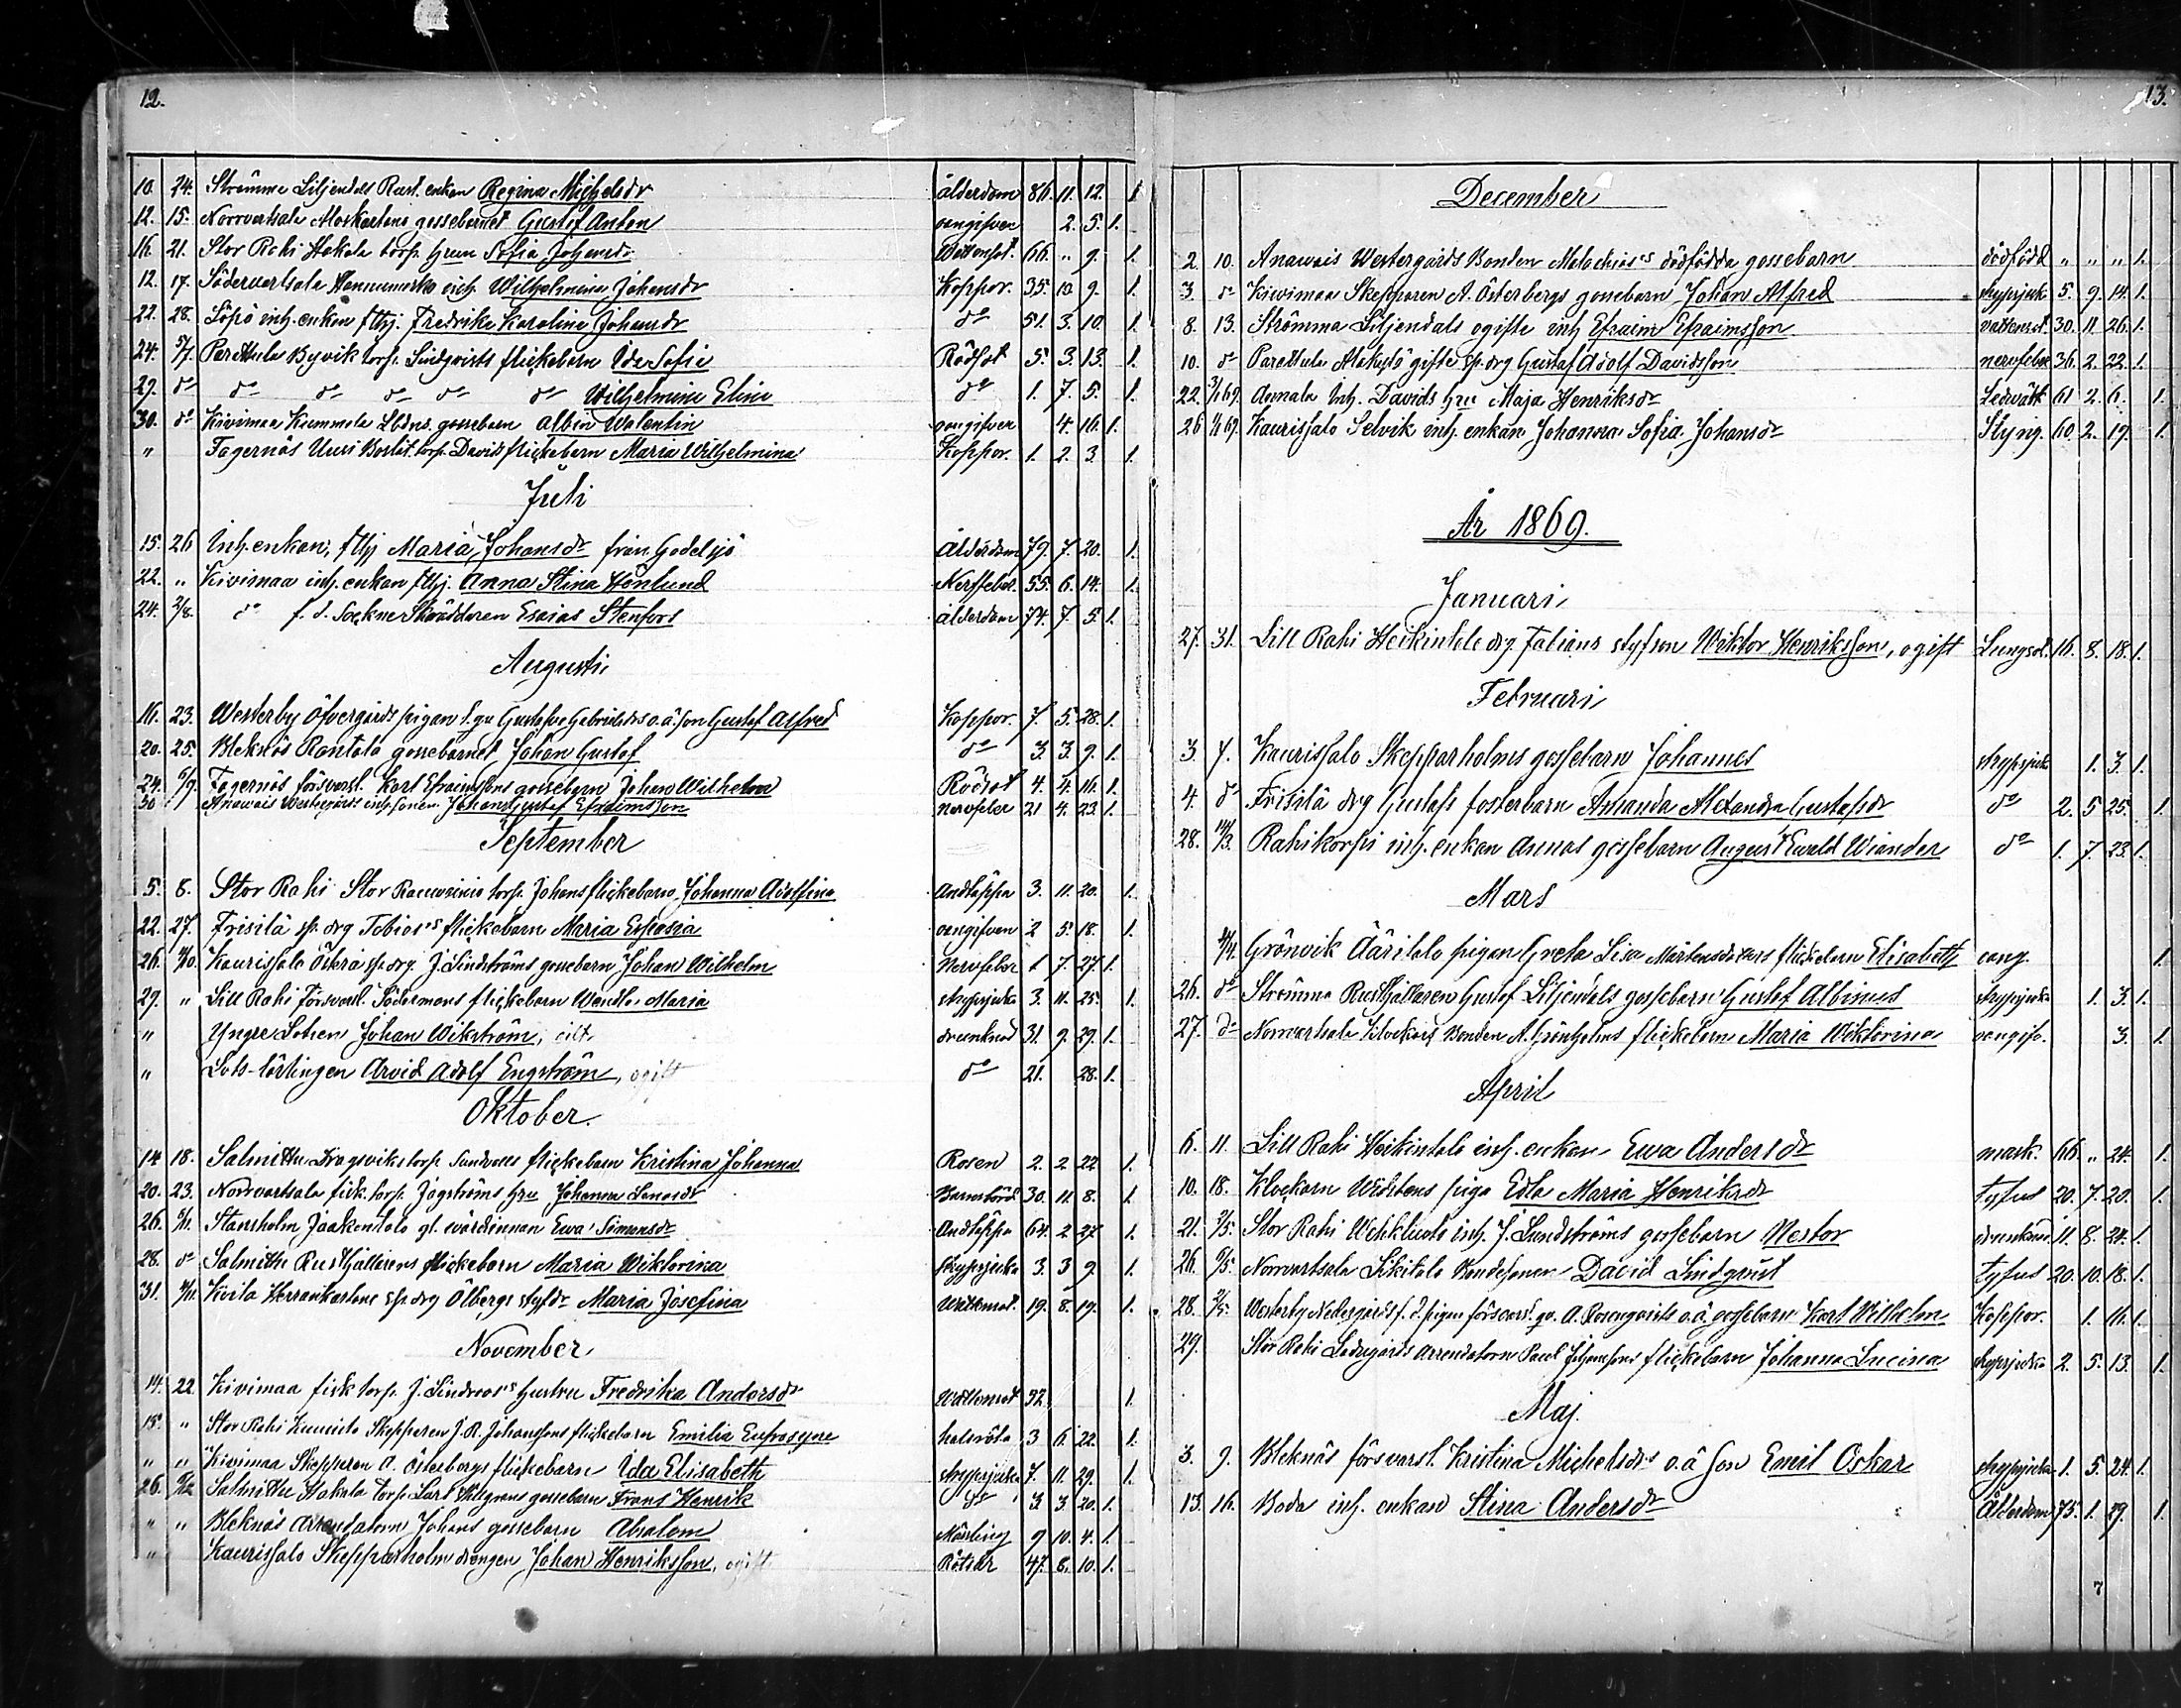 12.
10. 24. Strömma Liljendals Rust. enkan Regina Michelsdr ålderdom 86. 11. 12. 1.
12. 15. Norrvartsala gossebarnet Gustaf Anton oangifven 2. 5. 1.
16. 21. Stor Rahi Hakala torp. hru Sofia Johansdr Wattusot. 66. " 9. 1.
12. 17. Södervartsala inh. Wilhelmina Johansdr Koppor. 35. 10. 9. 1.
22. 28. Löpö inh. enkan ftthj. Fredrika Karolina Johansdr do 51. 3. 10. 1.
24. 5/7. Parattula Byvik torp. Lindqvists flickebarn Ida Sofia Rödsot 5. 3. 13. 1.
29. do do do do do do Wilhelmina Elina do 1. 7. 5. 1.
30. do Kivimaa Kummela gossebarn Albin Walentin oangifven 4. 16. 1.
" Fagernäs torp. Davids flickebarn Maria Wilhelmina Koppor. 1. 2. 3. 1.
Juli
15. 26 Inh. enkan, ftthj Maria Johansdr från Godelsjö Ålderdom 79. 7. 20. 1.
22. " Kivimaa inh. enkan ftthj. Anna Stina Hönlund Nerffeber. 55. 6. 14. 1.
24. 2/8. do f. d. Sockne Skräddaren Esaias Stenfors ålderdom 74. 7. 5. 1.
Augusti
16. 23. Westerby Öfvergårds pigan Gabrielsdrs o.ä. son Gustaf Alfred Koppor. 7. 5. 28. 1.
20. 25. Bleknäs Rantala gossebarnet Johan Gustaf do 3. 3. 9. 1.
24. 6/9. Fagernäs försvarsl. Karl Efraimssons gossebarn Johan Wilhelm Rödsot 4. 4. 16. 1.
30 Anavais Westergårds inh. sonen Johan Gustaf Efraimsson nervfeber 21 4. 23. 1.
September
5. 8. Stor Rahi Stor torp. Johans flickebarn Johanna Adolfina Andtäppa 3. 11. 20. 1.
22. 27. Frisilä sp. drg Tobias's flickebarn Maria oangifven 2 5. 18. 1.
26. Kaurissalo sp. drg. J. Lindströms gossebarn Johan Wilhelm Nervfeber 1 7. 27. 1.
29. " Lill Rahi Försvarsl. Södermans flickebarn Maria strypsjuka 3. 11. 25. 1.
" Yngre Lotsen Johan Wikström, drunknad 31. 9. 29. 1.
" Lots-lärlingen Arvid Adolf Engström, ogift do 21. 28. 1.
Oktober.
14 18. Salmittu Dragsviks torp. Sundvalls flickebarn Kristina Johanna Rosen 2. 2 22 1.
20. 23. Norrvartsala fisk. torp. Jagströms hru Johanna Barnsbörd 30. 11. 8. 1.
26. Starrholm Jaakontalo gl. värdinnan Ewa Simonsdr Andtäppa 64. 2 27 1.
28. do Salmittu Rusthållarens flickebarn Maria Wiktorina Strypsjuka 3. 3 9. 1.
31. Kivila Herrankartano sp. drg Ölbergs styfdr Maria Josefina Wattensot. 19. 8. 19. 1.
November
14. 22 Kivimaa fisk torp. J. Lindroos's hustru Fredrika Andersdr Wattensot 32. 1.
15. " Stor Rahi Skepparen J. R. Johanssons flickebarn Emilia Eufrosyne halsröta 3 6. 22. 1.
" " Kivimaa Skepparen A. Österbergs flickebarn Ida Elisabeth Strypsjuka 7. 11. 29. 1.
26. Salmittu Hakala torp. gossebarn Frans Henrik do 3 3. 20. 1.
" " Bleknäs Arrendatorn Johans gossebarn Absalom Mässling 9 10. 4. 1.
" Kaurissalo Skepparholm drängen Johan Henriksson, ogift Rötsår 47. 8. 10. 1.
13.
December
2. 10. Anawais Westergårds Bonden Malachias's dödfödda gossebarn dödfödd " " " 1.
3. do Kivimaa Skepparen A. Österbergs gossebarn Johan Alfred strypsjuk 5. 9. 14. 1.
8. 13. Strömma Liljendals ogifte inh Efraim Efraimsson vattensot. 30. 11. 26. 1.
10. do Parattula gifte sp. drg Gustaf Adolf Davidsson nervfeber 36. 2. 22. 1.
22. 3/1 69. Anmala Inh. Davids hru Maja Henriksdr Ledvärk 61 2. 6. 1.
26 1/1 69. Kaurissalo Selvik inh. enkan Johanna Sofia Johansdr Styng. 60. 2. 19. 1.
År 1869.
Januari
27. 31. Lill Rahi Heikintalo drg. styfson Wiktor Henriksson, ogift Lungsot. 16. 8. 18. 1.
Februari
3. 7. Kaurissalo Skepparholms gossebarn Johannes strypsjuk 1. 3. 1.
4. do Frisilä drg Gustafs fosterbarn Amanda Alexandra Gustafsdr do 2. 5 25. 1.
28. 14/3. Rahikorpi inh. enkan Annas gossebarn August Ewald Wiander do 1. 7. 23. 1.
Mars
4/4. Grönvik Ääritalo pigan Greta Lisa Mårtensdotters flickebarn Elisabeth oang. 1.
26. do Strömma Rusthållaren Gustaf Liljendals gossebarn Gustaf Albinus strypsjuka 1. 3. 1.
27. do Norrvartsala Bonden A. Grönholms flickebarn Maria Wiktorina oangifv. 3. 1.
April
6. 11. Lill Rahi Heikintalo inh. enkan Ewa Andersdr mask. 66. " 24. 1.
10. 18. Klockarn piga Edla Maria Henriksdr tyfus 20. 7. 20. 1.
21. 2/5. Stor Rahi inh. J. Lundströms gossebarn Nestor drunknad. 11. 8. 24. 1.
26. 6/5. Norrvartsala Sikitalo Bondesonen David Lindqvist tyfus 20. 10. 18. 1.
28. 2/5. Westerby Nedergårds f. d. pigan försvarsl. qv. A. Rosenqvists o.ä. gossebarn Karl Wilhelm Koppor. 1. 16. 1.
29. Stor Rahi Ladugårds arrendatorn Paul Johanssons flickebarn Johanna Lucina strypsjuka 2. 5. 13. 1.
Maj.
3. 9. Bleknäs försvarsl. Kristina Michelsdrs o.ä son Emil Oskar strypsjuka 1. 5. 24. 1.
13. 16. Boda inh. enkan Stina Andersdr Ålderdom 75. 1. 29. 1.